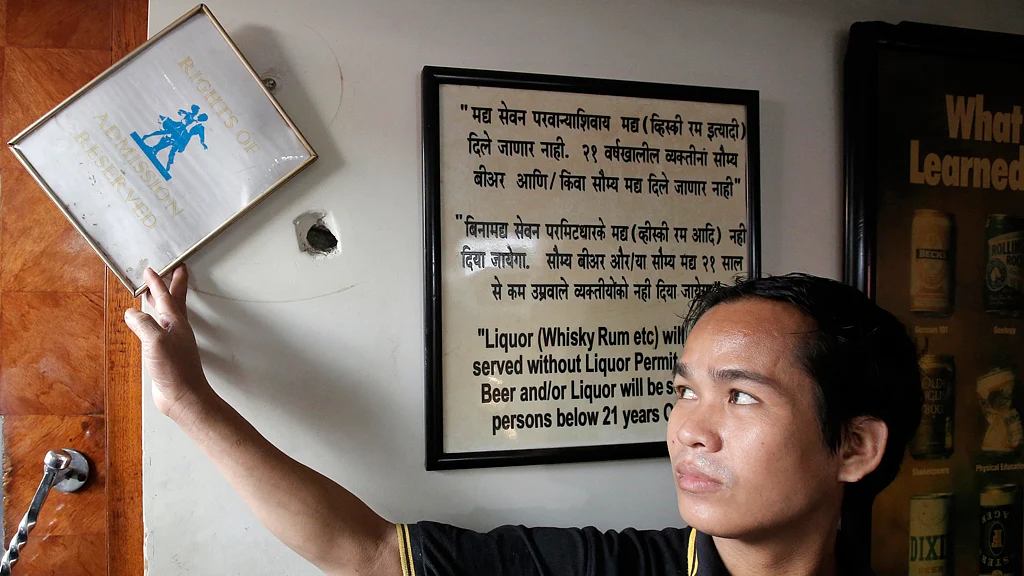 RIGHTS OF
ADMISSION
RESERVED
"मद्य सेवन परवान्याशिवाय मद्य (व्हिस्की रम इत्यादी)
दिले जाणार नाही. २१ वर्षखालील व्यक्तीना सौम्य
बीअर आणि/किंवा सौम्य मद्य दिले जाणार नाही"
"बिनामद्य सेवन परमिटधारके मद्य (व्हीस्की रम आदि) नही
दिया जायेगा. सौम्य बीअर और/या सौम्य मद्य २१ साल
से कम उम्रवाले व्यक्तीयोंको नही दिया
"Liquor (Whisky Rum etc) will
served without Liquor Permit
Beer and/or Liquor will be
persons below 21 years
What
Learned
BECK'S
ROLLING
ROCK
German 101
Geology
OLDE
800
Shakespeare
Physical Education
DIXIE
BEER